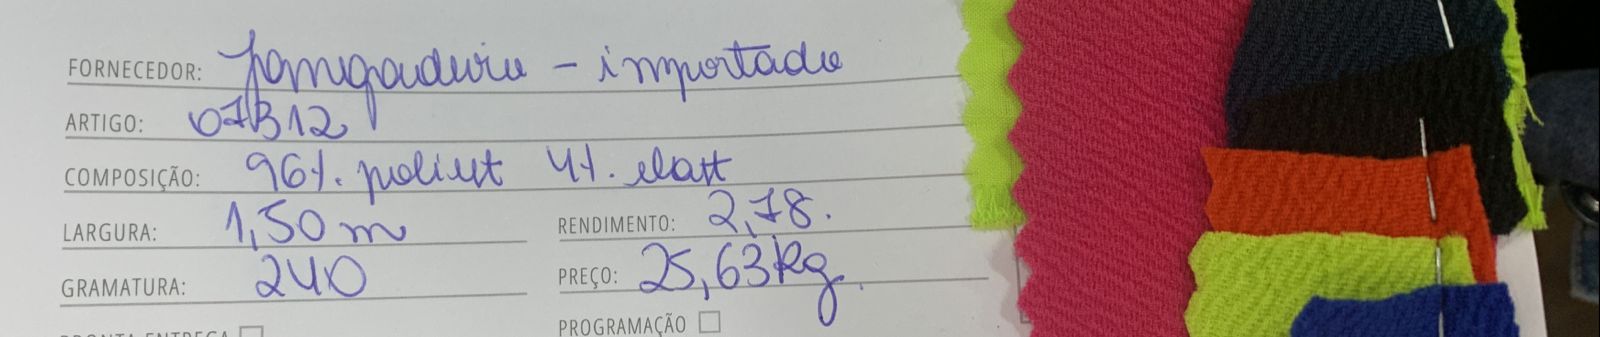 FORNECEDOR: - importado
ARTIGO: 07B12
COMPOSIÇÃO: 96%. poliest 4%. elast
LARGURA: 1,50 m
RENDIMENTO: 2,78.
GRAMATURA: 240
PREÇO: 25,63 kg.
PRONTA ENTREGA
PROGRAMAÇÃO